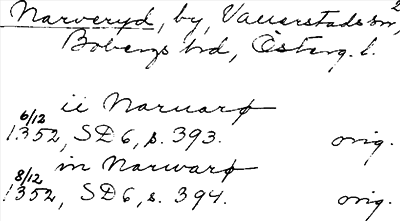 Narveryd, by, Vallerstads sn, 2
Bobergs hd, Österg. l.
ii Naruarø
6/12 1352, SD6, s. 393. orig.
in Narwarø
8/12 1352, SD6, s. 394. orig.